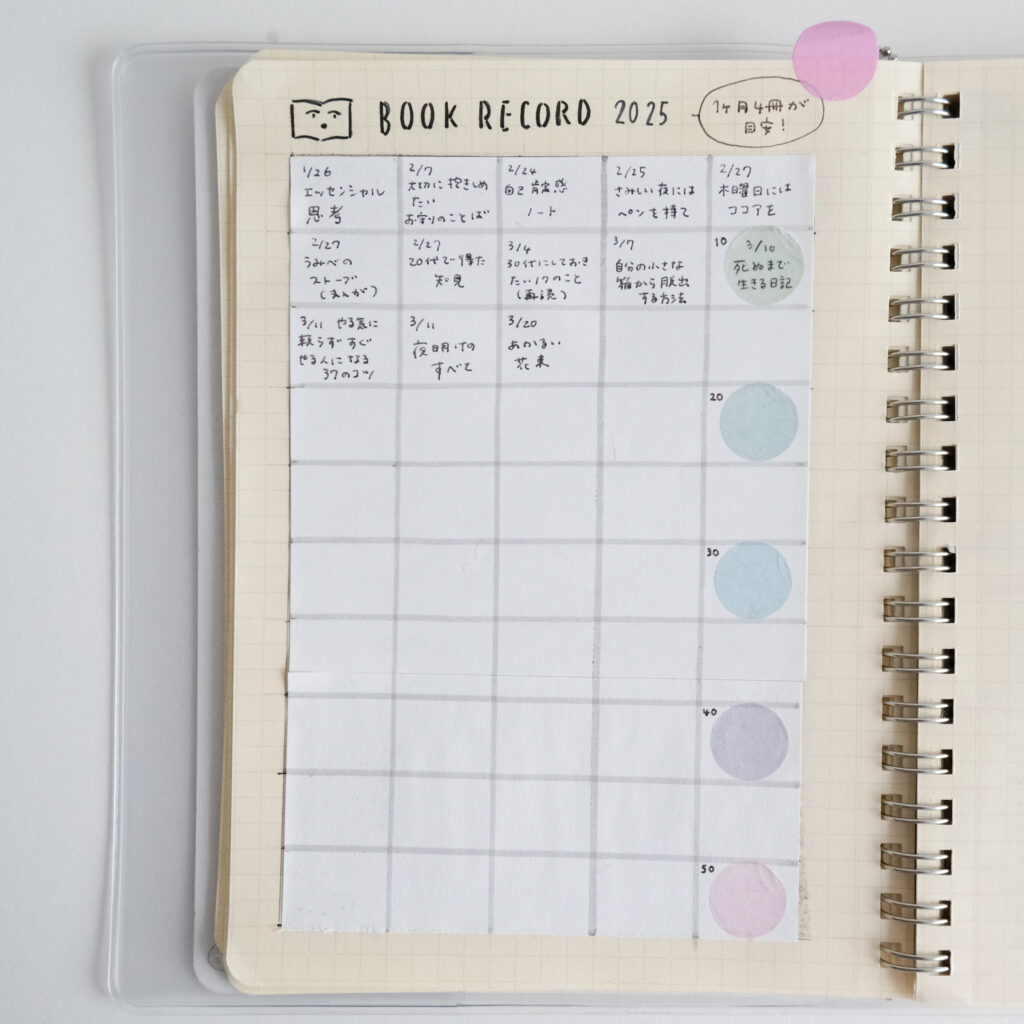 BOOK RECORD 2025
1ヶ月4冊が
目安!
1/26
エッセンシャル
思考
2/7
大切に抱きしめ
たい
お守りのことば
2/24
自己肯定感
ノート
2/25
さみしい夜には
ペンを持て
2/27
木曜日には
ココアを
2/27
うみべの
ストーブ
(まんが)
2/27
20代で得た
知見
3/4
30代にしておき
たい17のこと
(再読)
3/7
自分の小さな
箱から脱出
する方法
10
3/10
死ぬまで
生きる日記
3/11 やる気に
頼らずすぐ
やる人になる
37のコツ
3/11
夜明けの
すべて
3/20
あかるい
花束
20
30
40
50